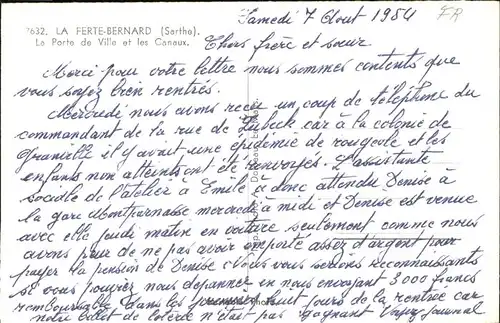 Samedi 7 Aout 1954
FR
7632. LA FERTE-BERNARD (Sarthe).
La Porte de Ville et les Canaux.
Chers frère et sœur
Merci pour votre lettre nous sommes contents que
vous soyez bien rentrés.
Mercredi nous avons reçu un coup de téléphone du
commandant de la rue de Lubeck car à la colonie de
Granville il y avait une épidémie de rougeole et les
enfants non atteints ont été renvoyés. L'assistante
sociale de l'atelier à Emile a donc attendu Denise à
la gare Montparnasse mercredi à midi et Denise est venue
avec elle jeudi matin en voiture seulement comme nous
avons peur de ne pas avoir emporté assez d'argent pour
payer la pension de Denise. Vous vous serions reconnaissants
si vous pouvez nous dépanner en nous envoyant 3000 francs
remboursable dans les huit jours de la rentrée car
notre billet de loterie n'était pas gagnant journal